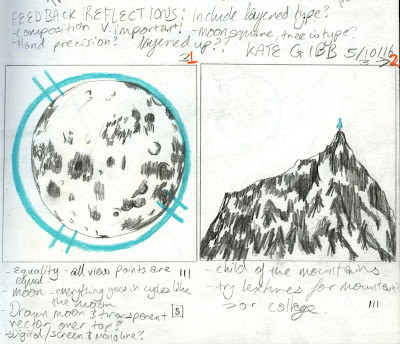 FEEDBACK REFLECTIONS: Include layered type?
-composition V. important! -moon square, tree is type?
-Hand precision? layered up?? KATE GIBB 5/10/16
1
→2
-equality - all view points are equal
-moon - everything goes in cycles like the moon
-Drawn moon & transparent vector over top?
S
→Digital/screen & monoline?
-child of the mountains
-try textures for mountain?
→or collage